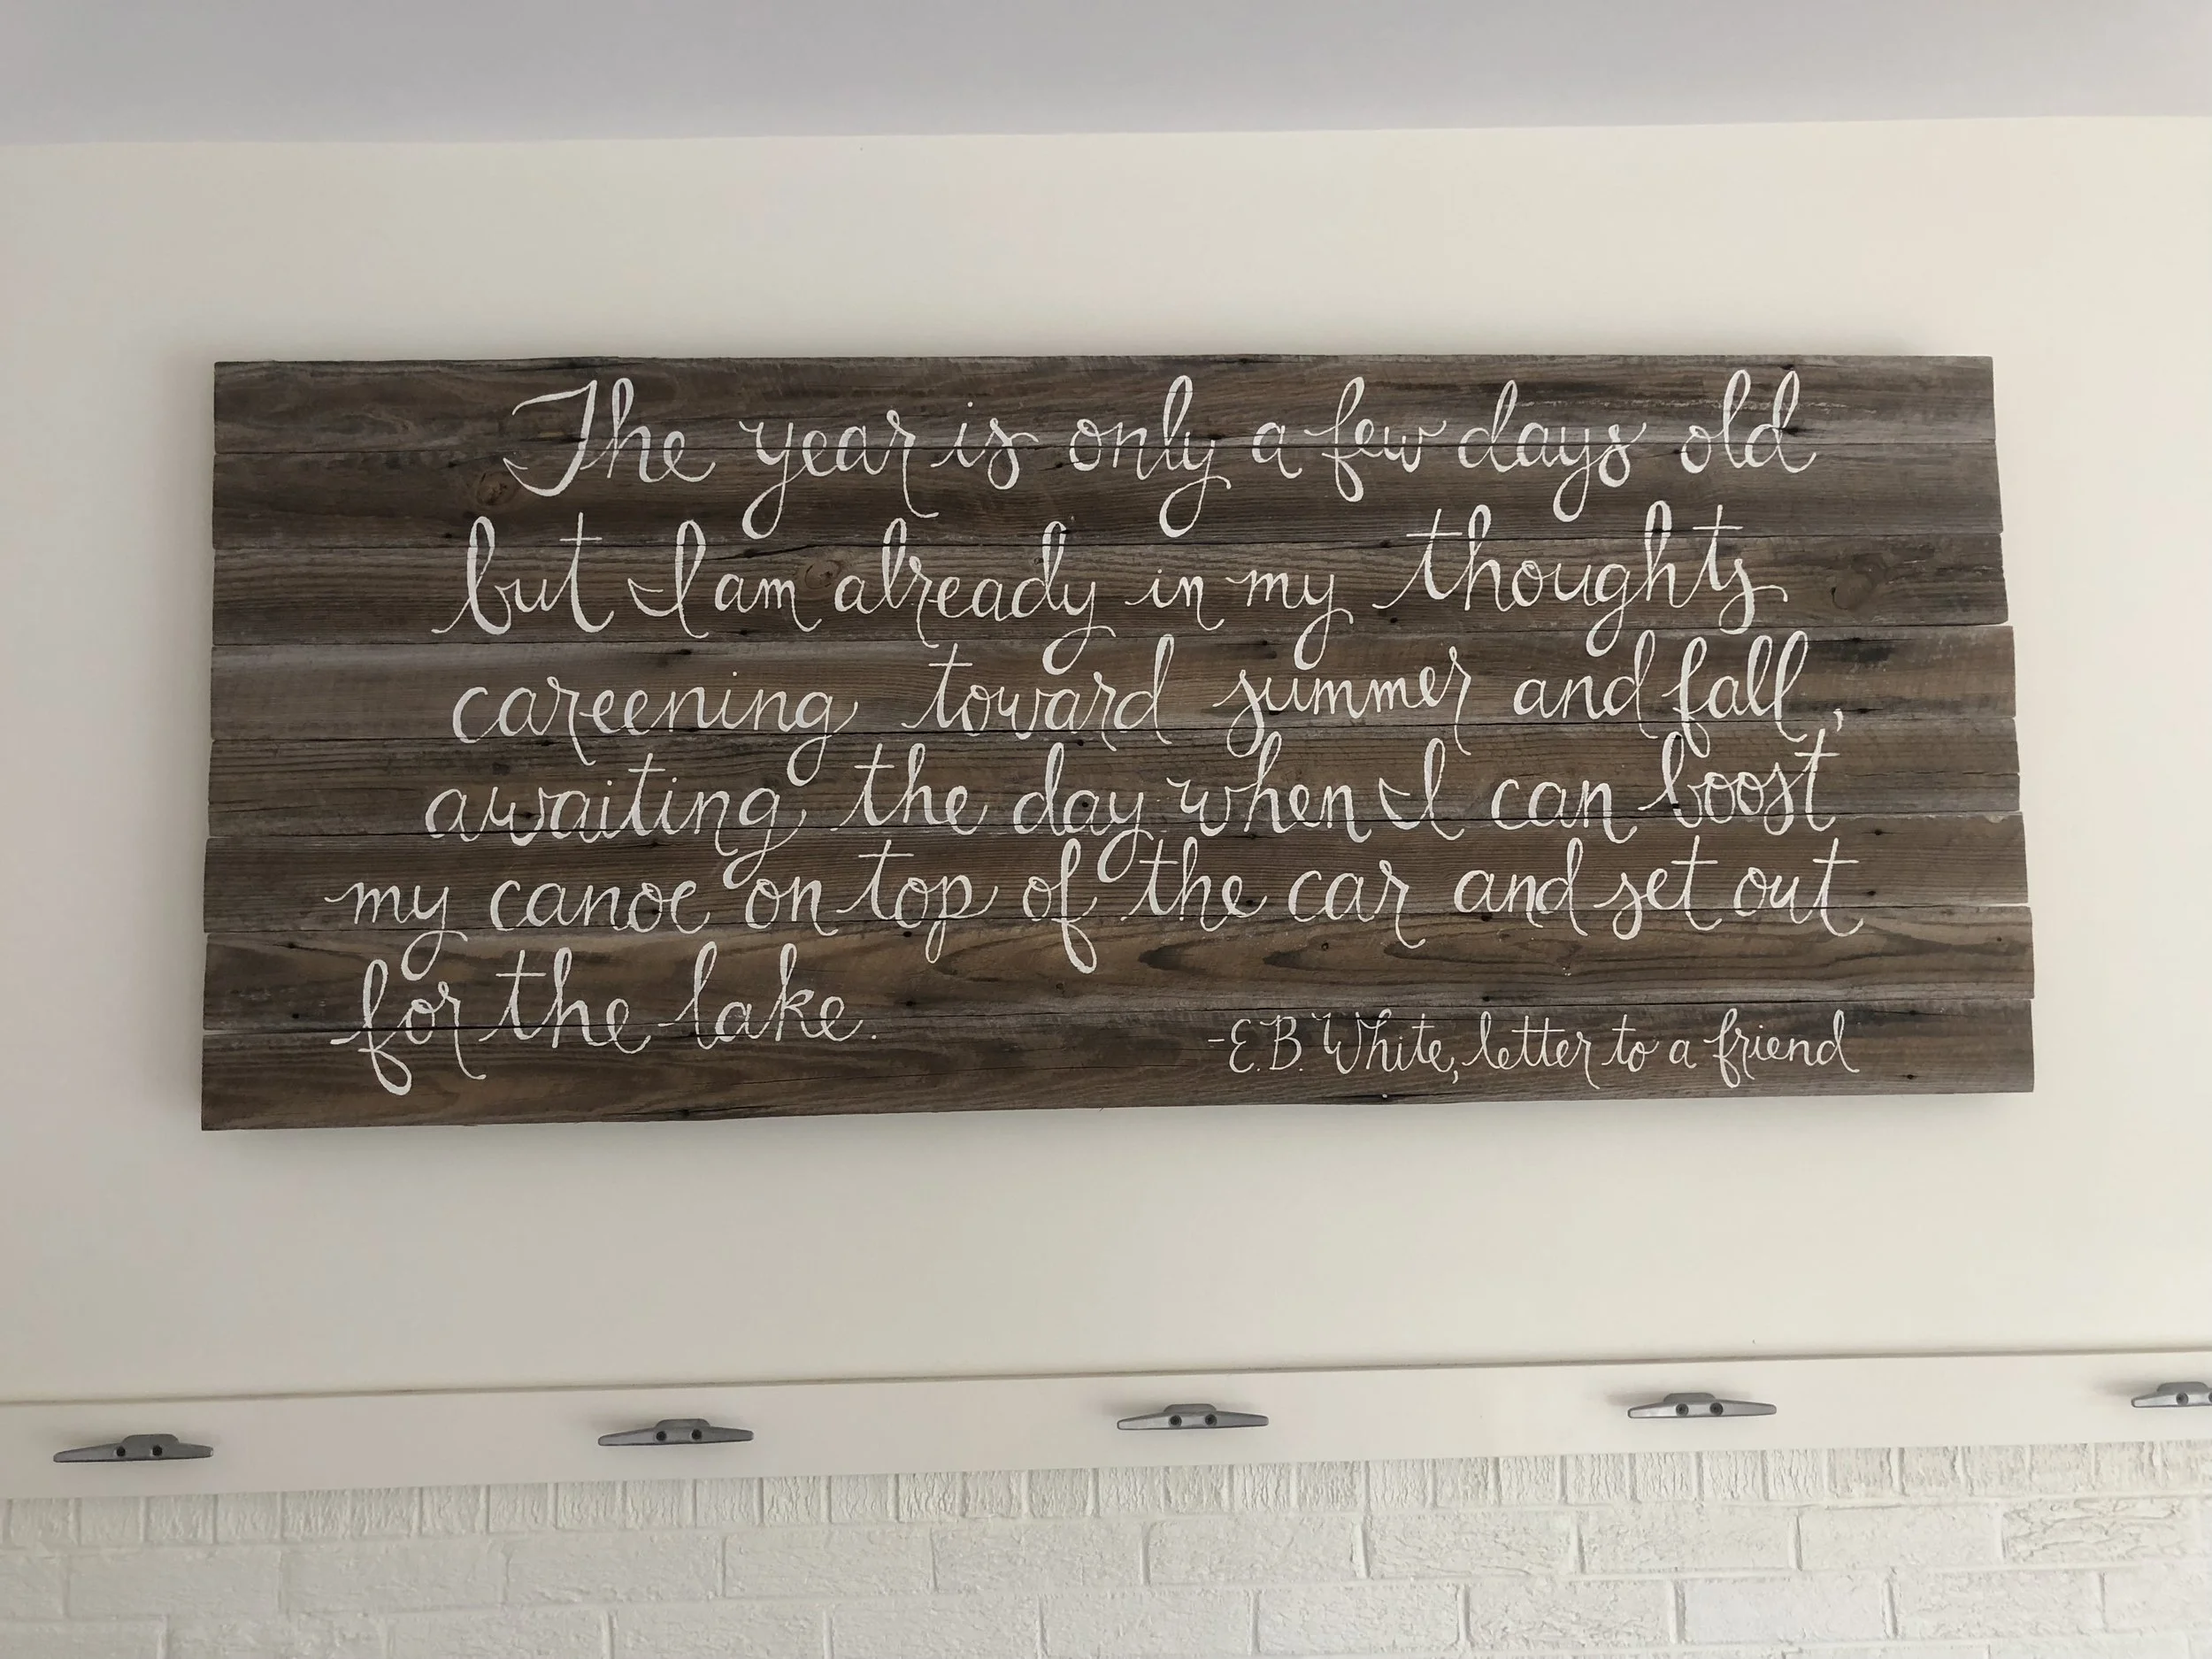 The year is only a few days old
but I am already in my thoughts
careening toward summer and fall,
awaiting the day when I can boost
my canoe on top of the car and set out
for the lake.
-E.B. White, letter to a friend